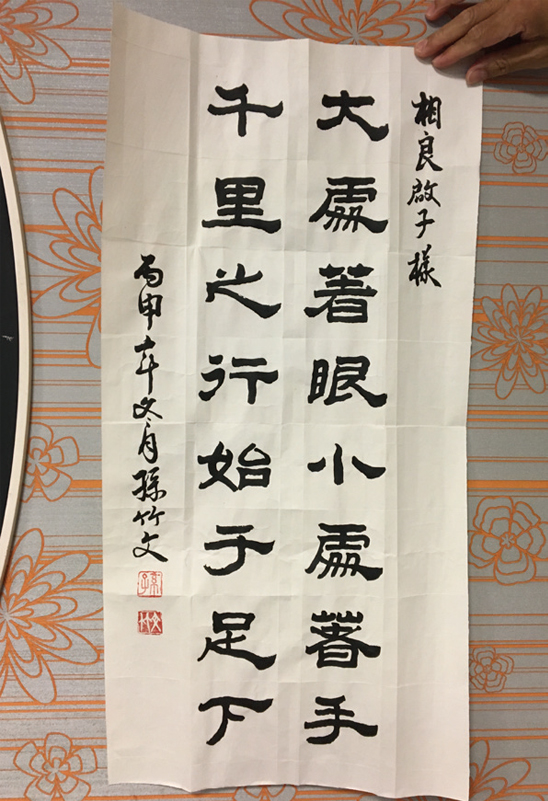 相良啟子様
大處著眼小處著手
千里之行始于足下
丙申年冬月孫竹文